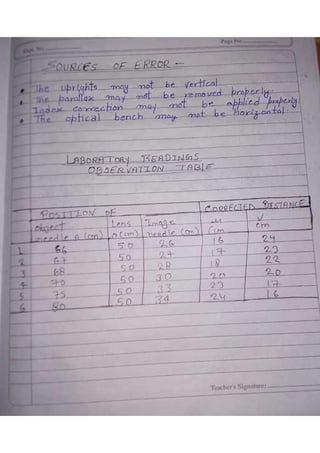 Page No.
Page No.
SOURCES OF ERROR -
• The uprights may not be vertical.
• The parallax may not be removed properly.
Index correction may not be applied properly
• The optical bench may not be horizontal.
LABORATORY READINGS
OBSERVATION TABLE
POSITION OF CORRECTED DISTANCE
object needle A (cm) Lens O (cm) Image needle (cm) u (cm V cm
1 66 50 26 16 24
2 67 50 27 17 23
3 68 50 28 18 22
4 70 50 30 20 20
5 75 50 33 23 17
6 80 50 34 24 16
Teacher's Signature: